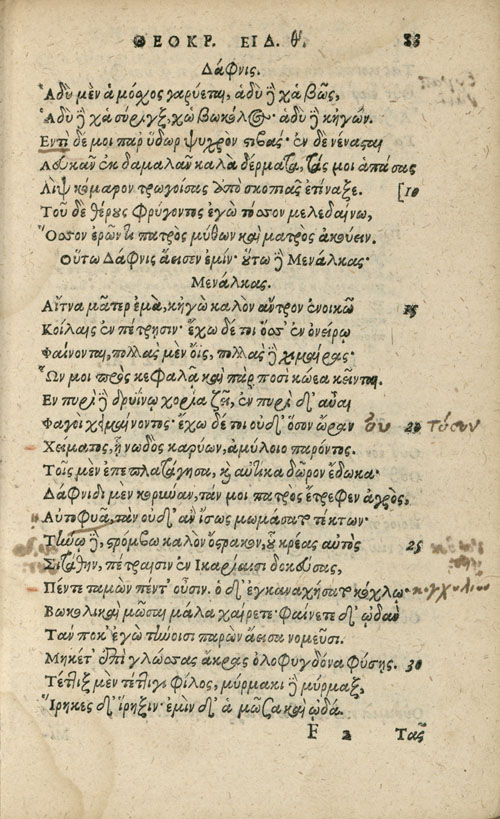 ΘΕΟΚΡ. ΕΙΔ. θʹ. 83
ΔΑΦΝΙΣ.
Ἁδὺ μὲν ἁ μόχος γαρύεται, ἁδὺ δὲ χἁ βῶς,
Ἁδὺ δὲ χἁ σύριγξ, χὠ βωκόλος· ἁδὺ δὲ κἠγών.
Ἐντὶ δέ μοι παρ' ὕδωρ ψυχρὸν στιβάς· ἐν δὲ νένασται
Λευκᾶν ἐκ δαμαλᾶν καλὰ δέρματα, τάς μοι ἁπάσας
Λὶψ κόμαρον τρωγοίσας ἀπὸ σκοπιᾶς ἐτίναξε. [10
Τοῦ δὲ θέρευς φρύγοντος ἐγὼ τόσσον μελεδαίνω,
Ὅσσον ἐρῶντι πατρὸς μύθων καὶ ματρὸς ἀκούειν.
Οὕτω Δάφνις ἄεισεν ἐμίν· οὕτω δὲ Μενάλκας·
Μενάλκας.
Αἴτνα μᾶτερ ἐμὰ, κἠγὼ καλὸν ἄντρον ἐνοικῶ 15
Κοίλαις ἐν πέτρῃσιν· ἔχω δέ τοι ὅσσ' ἐν ὀνείρῳ
Φαίνονται, πολλὰς μὲν ὄϊς, πολλὰς δὲ χιμαίρας·
Ὧν μοι πρὸς κεφαλᾷ καὶ πὰρ ποσὶ κώεα κεῖνται.
Ἐν πυρὶ δὲ δρυΐνῳ χορία ζεῖ, ἐν πυρὶ δ' αὖαι
Φαγοὶ χειμαίνοντος· ἔχω δέ τοι οὐδ' ὅσον ὥραν 20 τόσον
Χείματος, ἢ νωδὸς καρύων, ἀμύλοιο παρόντος.
Τοῖς μὲν ἐπεπλατάγησα, καὶ αὐτίκα δῶρον ἔδωκα·
Δάφνιδι μὲν κορώναν, τάν μοι πατρὸς ἔτρεφεν ἀγρὸς,
Αὐτοφυᾶ, τὰν οὐδ' ἂν ἴσως μωμάσατο τέκτων·
Τήνῳ δὲ, στρόμβω καλὸν ὄστρακον, οὗ κρέας αὐτὸς 25
Σιτήθην, πέτραισιν ἐν Ἰκαρίαισι δοκεύσας,
Πέντε ταμὼν πέντ' οὖσιν. ὁ δ' ἐγκαναχήσατο κόχλῳ· κογχυλίῳ
Βωκολικαὶ μῶσαι μάλα χαίρετε· φαίνετε δ' ᾠδὰν
Τάν ποκ' ἐγὼ τήνοισι παρὼν ἄεισα νομεῦσι.
Μηκέτ' ἐπὶ γλώσσας ἄκρας ὀλοφυγδόνα φύσῃς. 30
Τέττιξ μὲν τέττιγι φίλος, μύρμακι δὲ μύρμαξ,
Ἴρηκες δ' ἴρηξιν· ἐμὶν δ' ἁ μῶσα καὶ ᾠδά.
F 2 Τᾶς